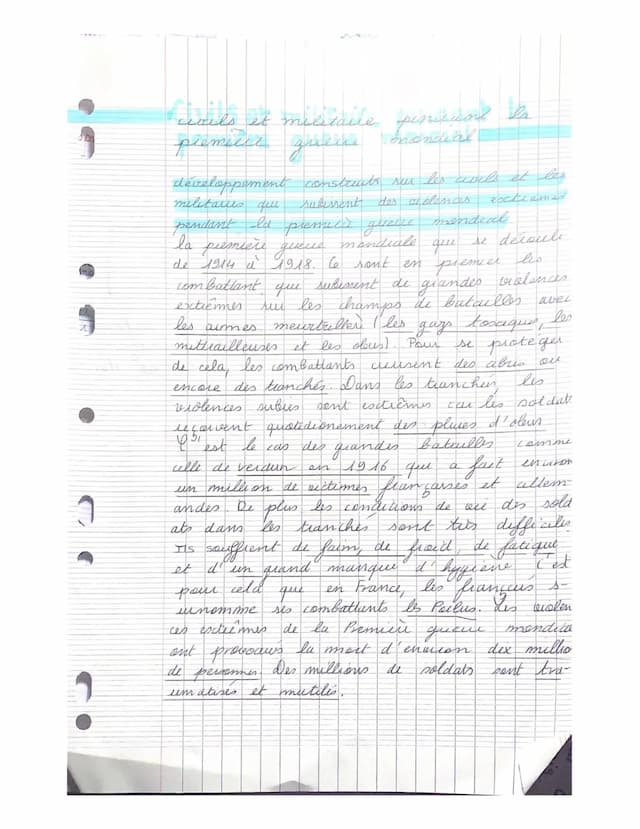 civils et militaire pendant la
première guerre mondial
développement construits sur les civils et les
militaires qui subissent des violences extremes
pendant la première guerre mondial
la première guerre mondiale que se déroule
de 1914 à 1918. Ce sont en premier les
combattant que subissent de grandes violences
extrêmes sur les champs de batailles avec
les armes meurtrière (les gazs toxique, les
mitrailleuses et les obus). Pour se protéger
de cela, les combattants creusent des abris ou
encore des tranchés. Dans les tranchés, les
violences subies sont extrêmes car les soldats
reçoivent quotidiennement des pluies d'obus
C'est le cas des grandes batailles comme
celle de verdun en 1916 qui a fait environ
un million de victimes françaises et allem-
andes. De plus les conditions de vie des sold
ats dans les tranchés sont très difficiles
Ils souffrent de faim, de froid, de fatigue
et d'un grand manque d'hygiène C'est
pour cela que en France, les français s-
urnomme ses combattants les Poilus. Les violen
ces extrêmes de la Première guerre mondia
ont provoqués la mort d'environ dix millio
de personnes. Des millions de soldats sont tra-
umatisés et mutilés.